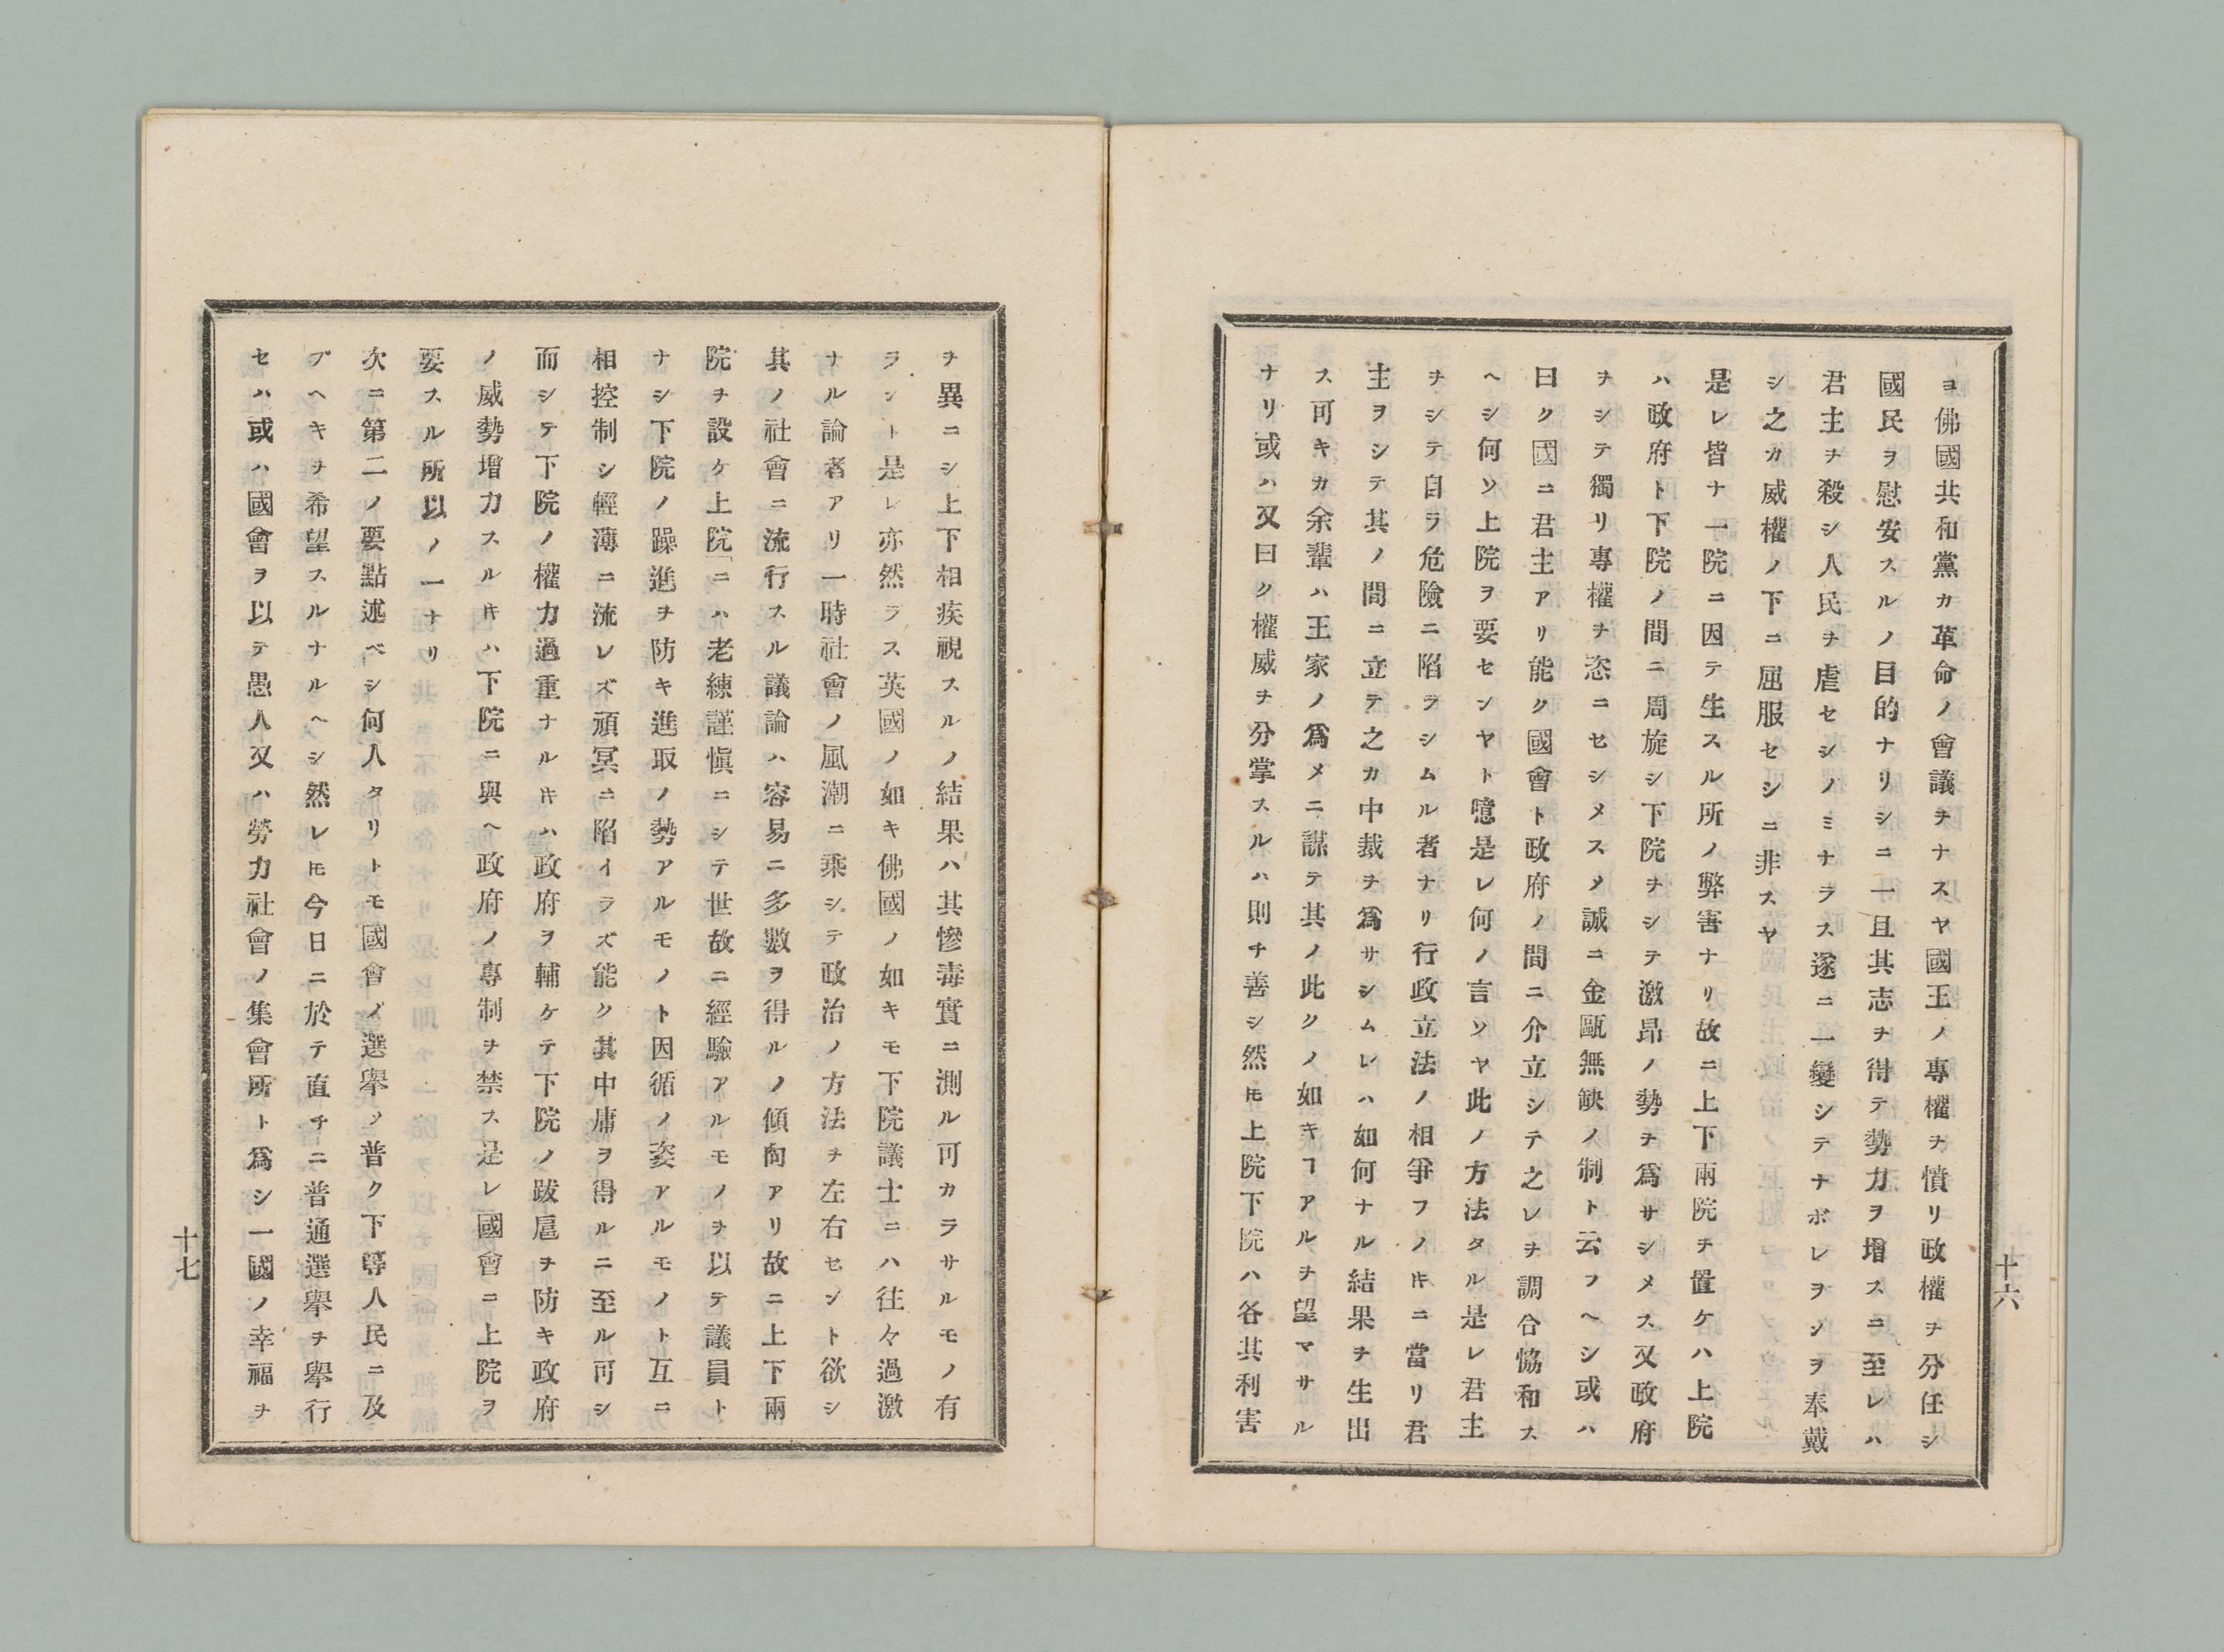 ヨ佛國共和黨カ革命ノ會議ヲナスヤ國王ノ專權ヲ憤リ政權ヲ分任シ
國民ヲ慰安スルノ目的ナリシニ一旦其志ヲ得テ勢力ヲ增スニ至レハ
君主ヲ殺シ人民ヲ虐セシノミナラス遂ニ一變シテナポレヲンヲ奉戴
シ之カ威權ノ下ニ屈服セシニ非スヤ
是レ皆ナ一院ニ因テ生スル所ノ弊害ナリ故ニ上下兩院ヲ置ケハ上院
ハ政府ト下院ノ間ニ周旋シ下院ヲシテ激昂ノ勢ヲ爲サシメス又政府
ヲシテ獨リ專權ヲ恣ニセシメスメ誠ニ金甌無缺ノ制ト云フヘシ或ハ
曰ク國ニ君主アリ能ク國會ト政府ノ間ニ介立シテ之レヲ調合恊和ス
ヘシ何ソ上院ヲ要センヤト噫是レ何ノ言ソヤ此ノ方法タル是レ君主
ヲシテ自ラ危險ニ陷ラシムル者ナリ行政立法ノ相爭フノキニ當リ君
主ヲシテ其ノ間ニ立テ之カ中裁ヲ爲サシムレハ如何ナル結果ヲ生出
ス可キカ余輩ハ王家ノ爲メニ謀テ其ノ此クノ如キヿアルヲ望マサル
ナリ或ハ又曰ク權威ヲ分掌スルハ則チ善シ然ㇳモ上院下院ハ各其利害
十六
ヲ異ニシ上下相疾視スルノ結果ハ其慘毒實ニ測ル可カラサルモノ有
ラント是レ亦然ラス英國ノ如キ佛國ノ如キモ下院議士ニハ往々過激
ナル論者アリ一時社會ノ風潮ニ乘シテ政治ノ方法ヲ左右セント欲シ
其ノ社會ニ流行スル議論ハ容易ニ多數ヲ得ルノ傾向アリ故ニ上下兩
院ヲ設ケ上院ニハ老練謹愼ニシテ世故ニ經驗アルモノヲ以テ議員ト
ナシ下院ノ躁進ヲ防キ進取ノ勢アルモノト因循ノ姿アルモノト互ニ
相控制シ輕薄ニ流レズ頑冥ニ陷イラズ能ク其中庸ヲ得ルニ至ル可シ
而シテ下院ノ權力過重ナルキハ政府ヲ輔ケテ下院ノ跋扈ヲ防キ政府
ノ威勢增力スルキハ下院ニ與ヘ政府ノ專制ヲ禁ス是レ國會ニ上院ヲ
要スル所以ノ一ナリ
次ニ第二ノ要點述ベシ何人タリトモ國會ノ選舉ノ普ク下等人民ニ及
ブヘキヲ希望スルナルヘシ然レㇳモ今日ニ於テ直チニ普通選舉ヲ舉行
セハ或ハ國會ヲ以テ愚人又ハ勞力社會ノ集會所ト爲シ一國ノ幸福ヲ
十七